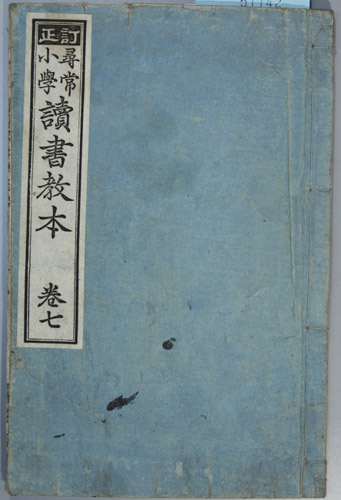 訂正
尋常
小學
讀書教本
卷七